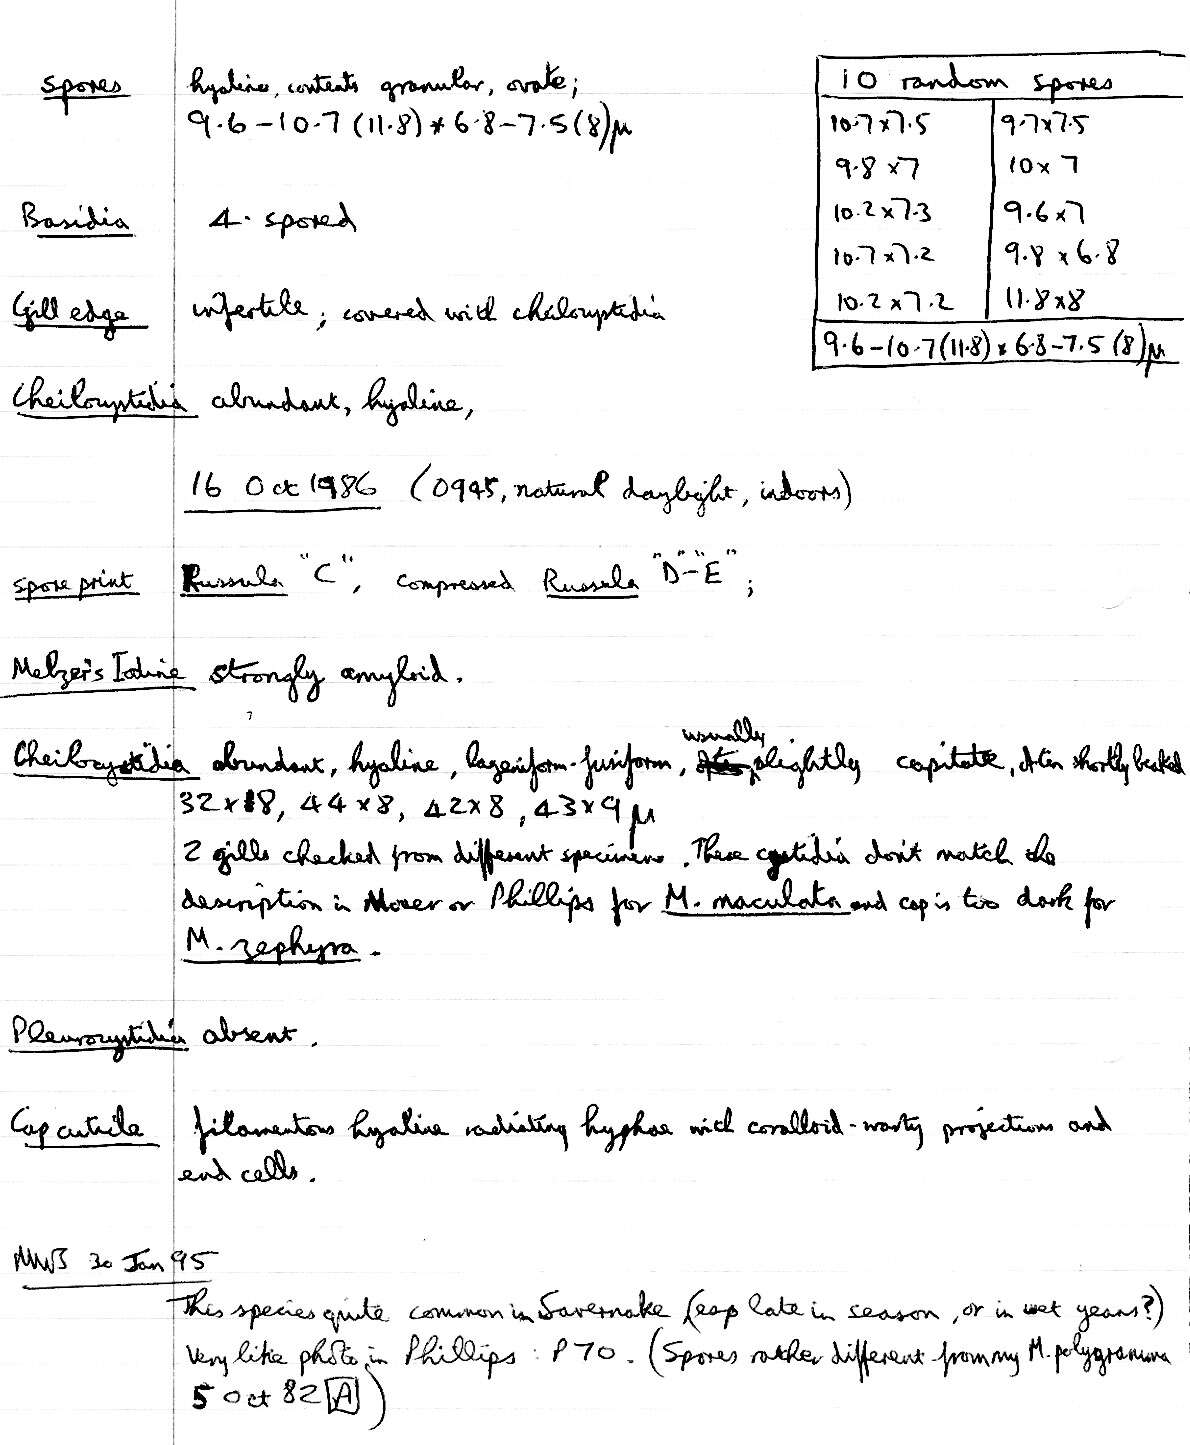 spores hyaline, contents granular, ovate;
9.6-10.7 (11.8) * 6.8-7.5 (8) μ
10 random spores
10.7x7.5 9.7x7.5
9.8 x7 10x 7
10.2x7.3 9.6x7
10.7x7.2 9.8 x 6.8
10.2 x7.2 11.8x8
9.6-10.7 (11.8) x 6.8-7.5 (8) μ
Basidia 4-spored
Gill edge infertile; covered with cheilocystidia
Cheilocystidia abundant, hyaline,
16 Oct 1986 (0945, natural daylight, indoors)
spore print Russula "C", compressed Russula "D"-"E";
Melzer's Iodine strongly amyloid.
Cheilocystidia abundant, hyaline, lageniform-fusiform, usually slightly capitate, often shortly beaked
32 x 8, 44 x 8, 42 x 8, 43 x 9 μ
2 gills checked from different specimens. These cystidia don't match the
description in Moser or Phillips for M. maculata and cap is too dark for
M. zephyra.
Pleurocystidia absent.
Cap cuticle filamentous hyaline radiating hyphae with coralloid-warty projections and
end cells.
30 Jan 95
This species quite common in Savernake (esp late in season, or in wet years?)
Very like photo in Phillips: P70. (Spores rather different from my M. polygramma
5 Oct 82 [A])